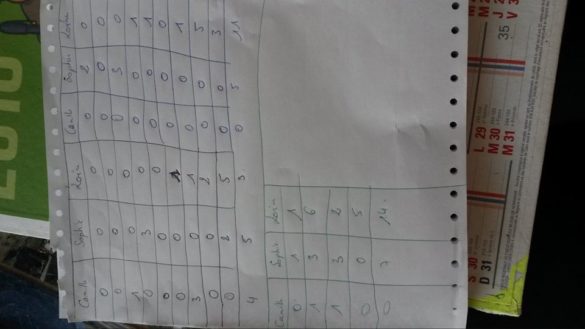 2016
Camille Sophie Camille Sophie
0 0 0 0 2 0
0 0 0 0 0 0
1 0 0 0 3 1
0 3 0 0 0 1
0 0 1 0 0 0
3 0 1 0 0 1
0 0 2 0 0 5
0 2 5 0 0 3
4 5 9 0 5 11
Camille Sophie
0 1 1
1 3 6
1 3 2
0 0 5
0 7 14
S 30
D 31
L 29
M 30
M 31
35